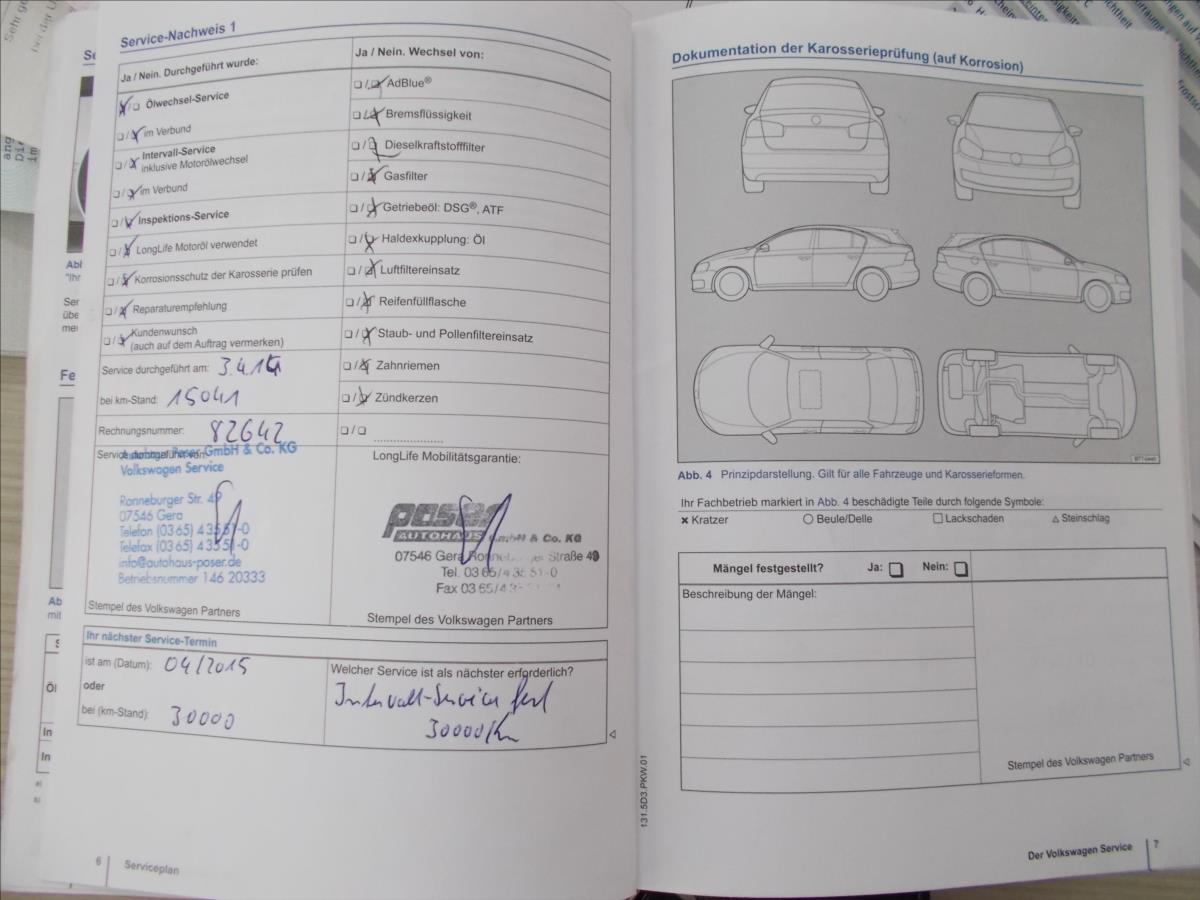 Service-Nachweis 1
Ja / Nein. Durchgeführt wurde:
☒/❏ Ölwechsel-Service
❏/☒ im Verbund
❏/☒ Intervall-Service
inklusive Motorölwechsel
❏/☒ im Verbund
❏/☒ Inspektions-Service
❏/☒ LongLife Motoröl verwendet
❏/☒ Korrosionsschutz der Karosserie prüfen
❏/☒ Reparaturempfehlung
❏/☒ Kundenwunsch
(auch auf dem Auftrag vermerken)
Service durchgeführt am: 3.4.14
bei km-Stand: 15041
Rechnungsnummer: 82642
Service durchgeführt von:
Autohaus Poser GmbH & Co. KG
Volkswagen Service
Ronneburger Str. 49
07546 Gera
Telefon (0365) 43551-0
Telefax (0365) 43551-0
info@autohaus-poser.de
Betriebsnummer 146 20333
Stempel des Volkswagen Partners
Ja / Nein. Wechsel von:
❏/☒ AdBlue®
❏/☒ Bremsflüssigkeit
❏/☒ Dieselkraftstofffilter
❏/☒ Gasfilter
❏/☒ Getriebeöl: DSG®, ATF
❏/☒ Haldexkupplung: Öl
❏/☒ Luftfiltereinsatz
❏/☒ Reifenfüllflasche
❏/☒ Staub- und Pollenfiltereinsatz
❏/☒ Zahnriemen
❏/☒ Zündkerzen
❏/❏ ......................
LongLife Mobilitätsgarantie:
poser
AUTOHAUS GmbH & Co. KG
07546 Gera Straße 49
Tel. 03 65/4 35 51-0
Fax 03 65/4 3
Stempel des Volkswagen Partners
Ihr nächster Service-Termin
ist am (Datum): 04/2015
oder
bei (km-Stand): 30000
Welcher Service ist als nächster erforderlich?
Intervall-Service fest
30000/Km
6 Serviceplan
Dokumentation der Karosserieprüfung (auf Korrosion)
Abb. 4 Prinzipdarstellung. Gilt für alle Fahrzeuge und Karosserieformen.
Ihr Fachbetrieb markiert in Abb. 4 beschädigte Teile durch folgende Symbole:
✖ Kratzer ○ Beule/Delle □ Lackschaden △ Steinschlag
Mängel festgestellt? Ja: ❏ Nein: ❏
Beschreibung der Mängel:
Stempel des Volkswagen Partners
131.5D3.PKW.01
Der Volkswagen Service 7